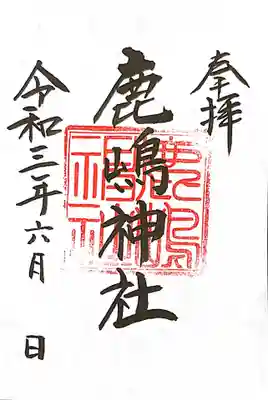 奉拝
鹿嶋神社
鹿嶋
神社
令和三年六月 日